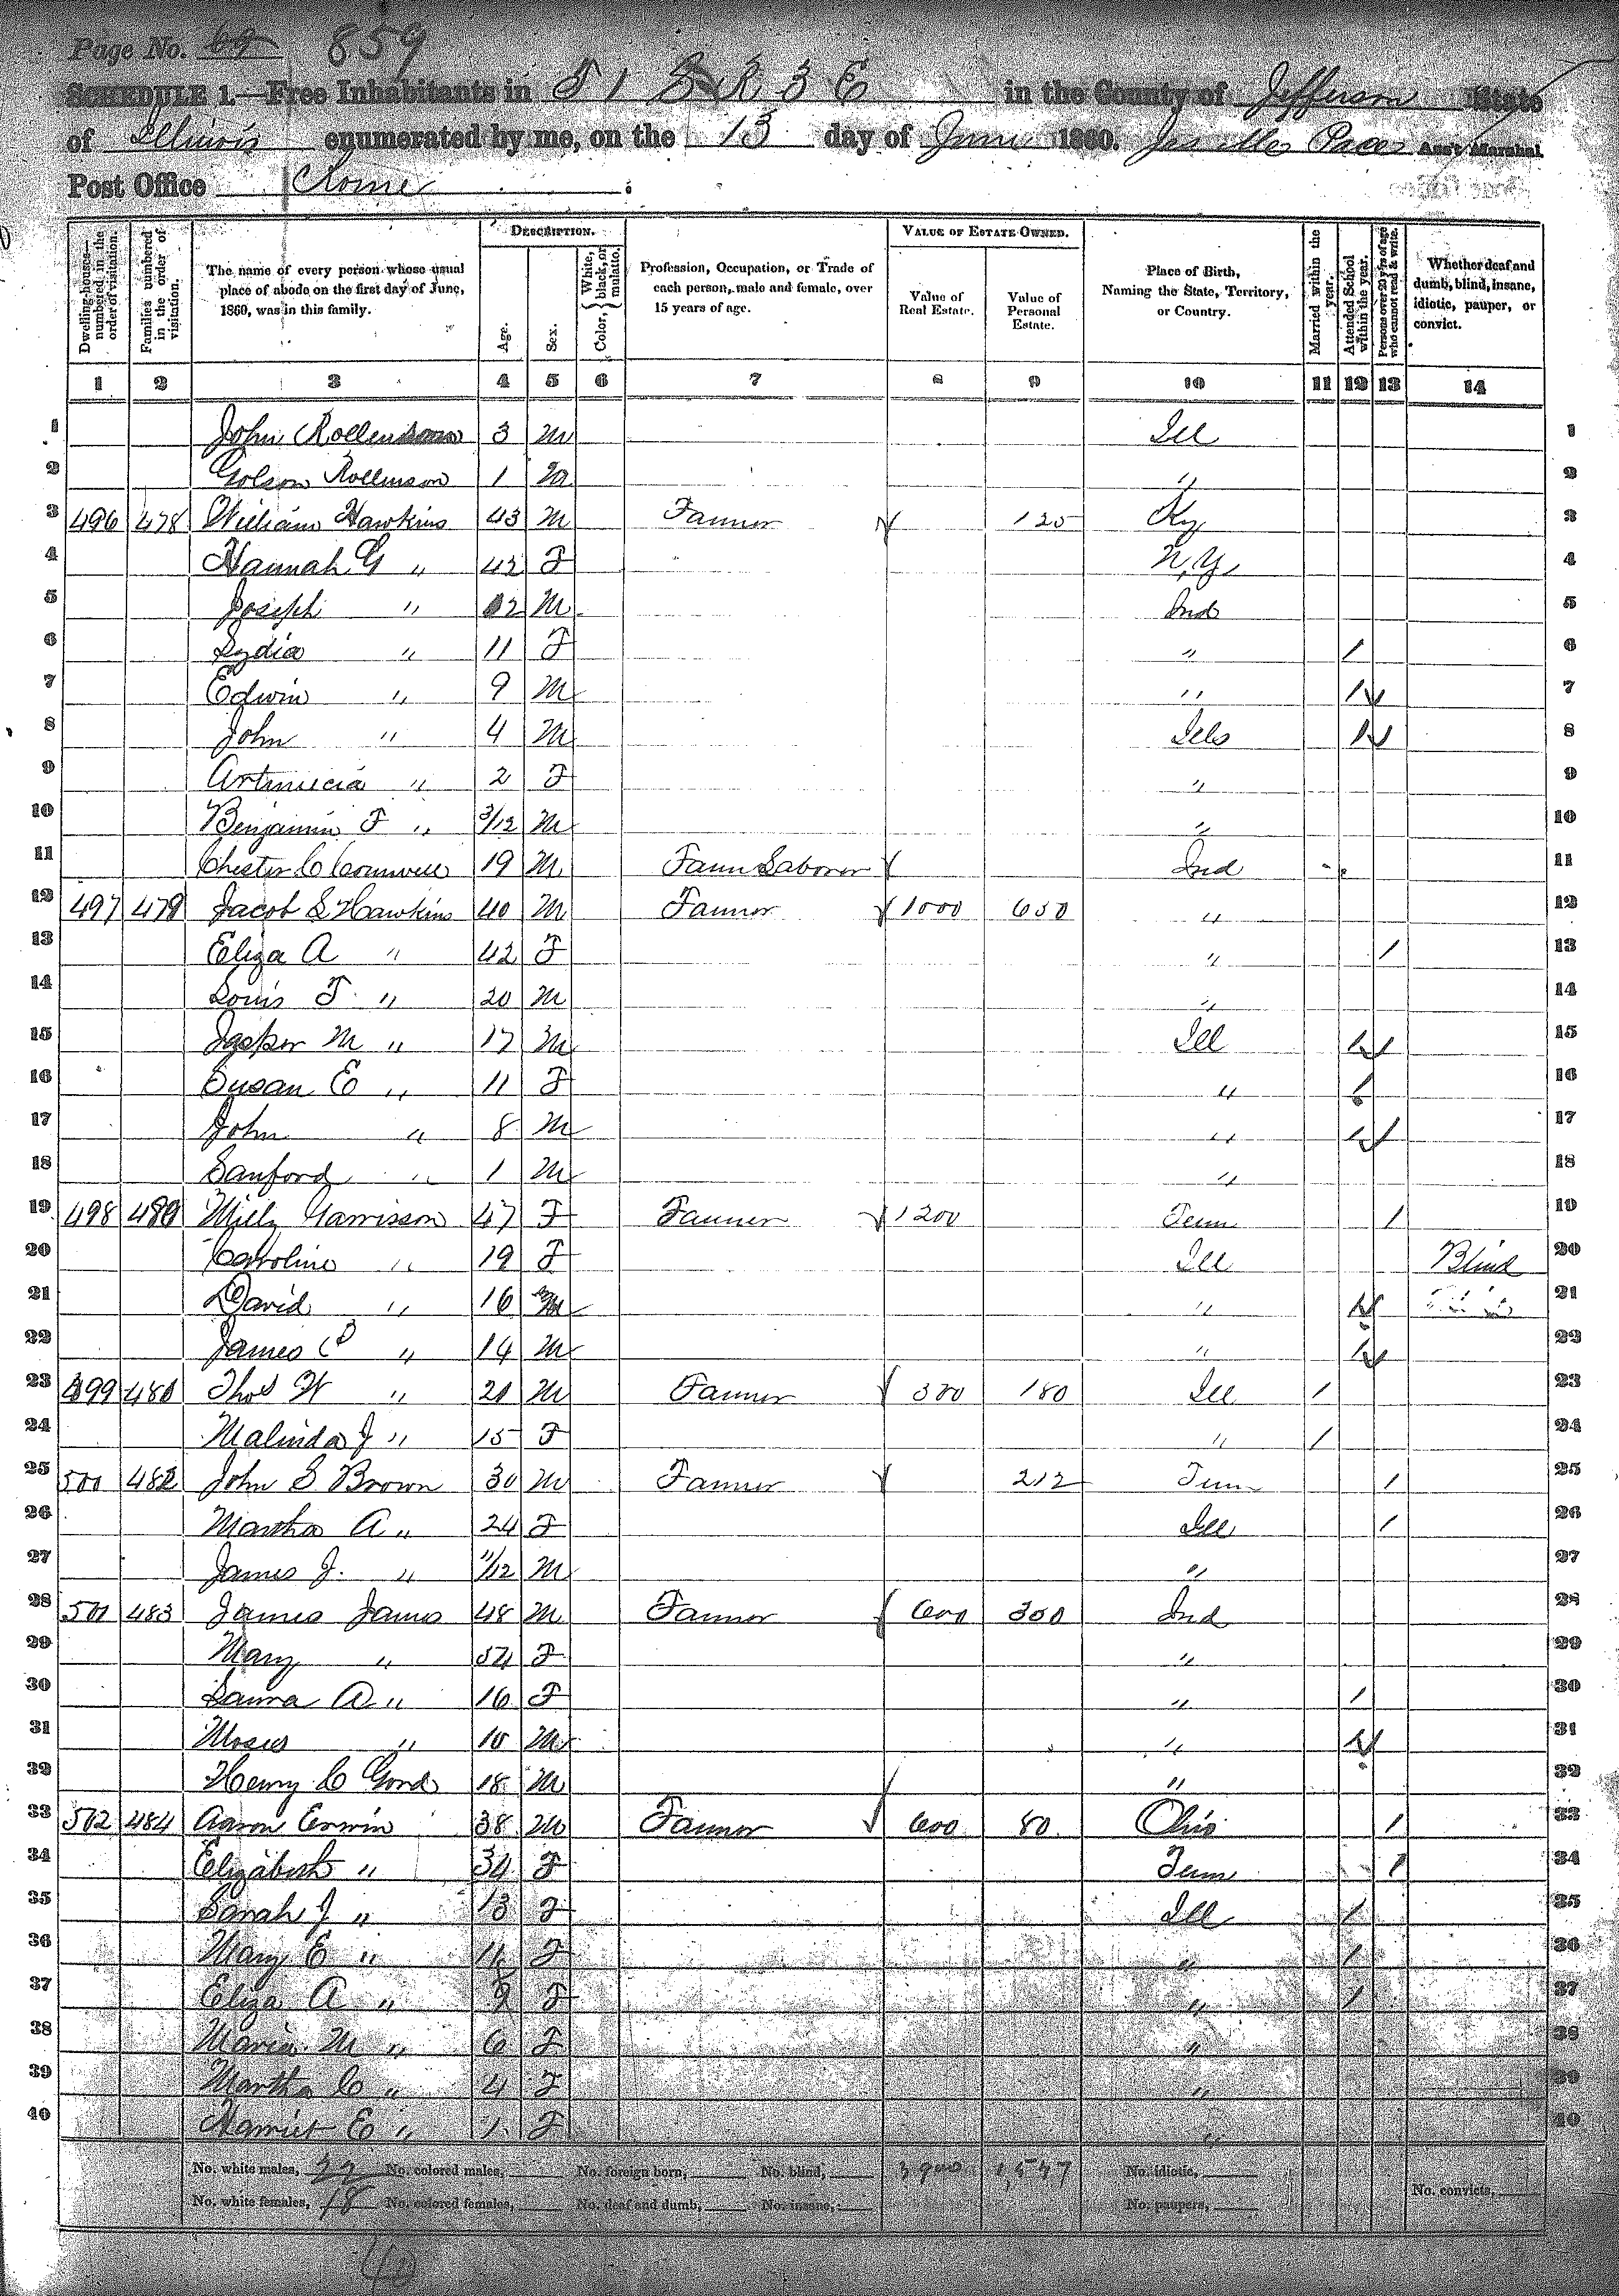 Page No. 69 859
SCHEDULE 1.—Free Inhabitants in T 1 S R 3 E in the County of Jefferson State
of Illinois enumerated by me, on the 13 day of June 1860. Pace Ass't Marshal.
Post Office Rome
Dwelling-houses—numbered in the order of visitation. Families numbered in the order of visitation. The name of every person whose usual place of abode on the first day of June, 1860, was in this family. DESCRIPTION. Age. Sex. Color, { White, black, or mulatto. Profession, Occupation, or Trade of each person, male and female, over 15 years of age. VALUE OF ESTATE OWNED. Value of Real Estate. Value of Personal Estate. Place of Birth, Naming the State, Territory, or Country. Married within the year. Attended School within the year. Persons over 20 y'rs of age who cannot read & write. Whether deaf and dumb, blind, insane, idiotic, pauper, or convict.
1 2 3 4 5 6 7 8 9 10 11 12 13 14
1 John 3 M Ill 1
2 Golson Rollinson 1 M " 2
3 496 478 William Hawkins 43 M Farmer 125 Ky 3
4 Hannah G " 42 F N.Y. 4
5 Joseph " 12 M Ind 5
6 Lydia " 11 F " / 6
7 Edwin " 9 M " / 7
8 John " 4 M Ills / 8
9 Artimicia " 2 F " 9
10 Benjamin F " 3/12 M " 10
11 Chester C Cornwell 19 M Farm Laborer Ind 11
12 497 479 Jacob S Hawkins 40 M Farmer 1000 650 " 12
13 Eliza A " 42 F " / 13
14 Louis F. " 20 M " 14
15 Jasper M " 17 M Ill / 15
16 Susan E " 11 F " / 16
17 John " 8 M " / 17
18 Sanford " 1 M " 18
19 498 480 Milly Garrisson 47 F Farmer 1200 Tenn / 19
20 Caroline " 19 F Ill Blind 20
21 David " 16 M " / 21
22 James P " 14 M " / 22
23 499 481 Thos W " 21 M Farmer 300 180 Ill / 23
24 Malinda J " 15 F " / 24
25 500 482 John S Brown 30 M Farmer 212 Tenn / 25
26 Martha A " 24 F Ill / 26
27 James J. " 11/12 M " 27
28 501 483 James James 48 M Farmer 600 300 Ind 28
29 Mary " 54 F " 29
30 Laura A " 16 F " / 30
31 Moses " 10 M " / 31
32 Henry C 18 M " 32
33 502 484 Aaron Erwin 38 M Farmer 600 80 Ohio / 33
34 Elizabeth " 34 F Tenn / 34
35 Sarah J " 13 F Ill / 35
36 Mary E " 11 F " / 36
37 Eliza A " 9 F " / 37
38 Maria M " 6 F " 38
39 Martha C " 4 F " 39
40 Harriet E " 1 F " 40
No. white males, 22 No. colored males, No. foreign born, No. blind, 3900 1,547 No. idiotic,
No. white females, 18 No. colored females, No. deaf and dumb, No. insane, No. paupers, No. convicts,
40